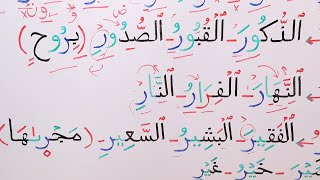 الذُّكُورَ - الْقُبُورُ - الصُّدُورِ (بِرُوحٍ)
النَّهَارَ - الْفِرَارُ - النَّارِ
الْفَقِيرَ - الْبَشِيرُ - السَّعِيرِ (مَجْرٜىٰهَا)
خَيْرُ - غَيْرَ